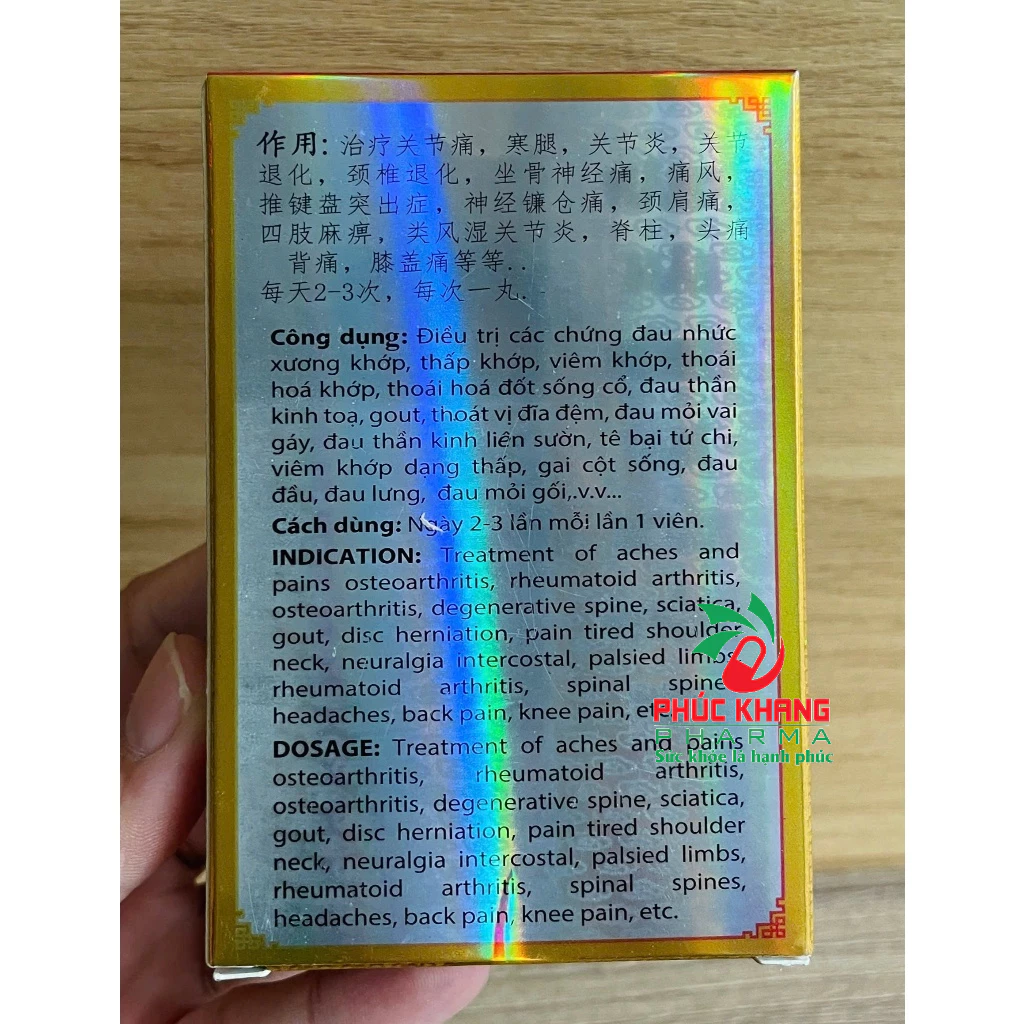 作用: 治疗关节痛，寒腿，关节炎，关节
退化，颈椎退化，坐骨神经痛，痛风，
推键盘突出症，神经镰仓痛，颈肩痛，
四肢麻痹，类风湿关节炎，脊柱，头痛
背痛，膝盖痛等等..
每天2-3次，每次一丸.
Công dụng: Điều trị các chứng đau nhức
xương khớp, thấp khớp, viêm khớp, thoái
hoá khớp, thoái hoá đốt sống cổ, đau thần
kinh toạ, gout, thoát vị đĩa đệm, đau mỏi vai
gáy, đau thần kinh liên sườn, tê bại tứ chi,
viêm khớp dạng thấp, gai cột sống, đau
đầu, đau lưng, đau mỏi gối,.v.v...
Cách dùng: Ngày 2-3 lần mỗi lần 1 viên.
INDICATION: Treatment of aches and
pains osteoarthritis, rheumatoid arthritis,
osteoarthritis, degenerative spine, sciatica,
gout, disc herniation, pain tired shoulder
neck, neuralgia intercostal, palsied limbs,
rheumatoid arthritis, spinal spines,
headaches, back pain, knee pain, etc.
PHÚC KHANG
PHARMA
Sức khỏe là hạnh phúc
DOSAGE: Treatment of aches and pains
osteoarthritis, rheumatoid arthritis,
osteoarthritis, degenerative spine, sciatica,
gout, disc herniation, pain tired shoulder
neck, neuralgia intercostal, palsied limbs,
rheumatoid arthritis, spinal spines,
headaches, back pain, knee pain, etc.